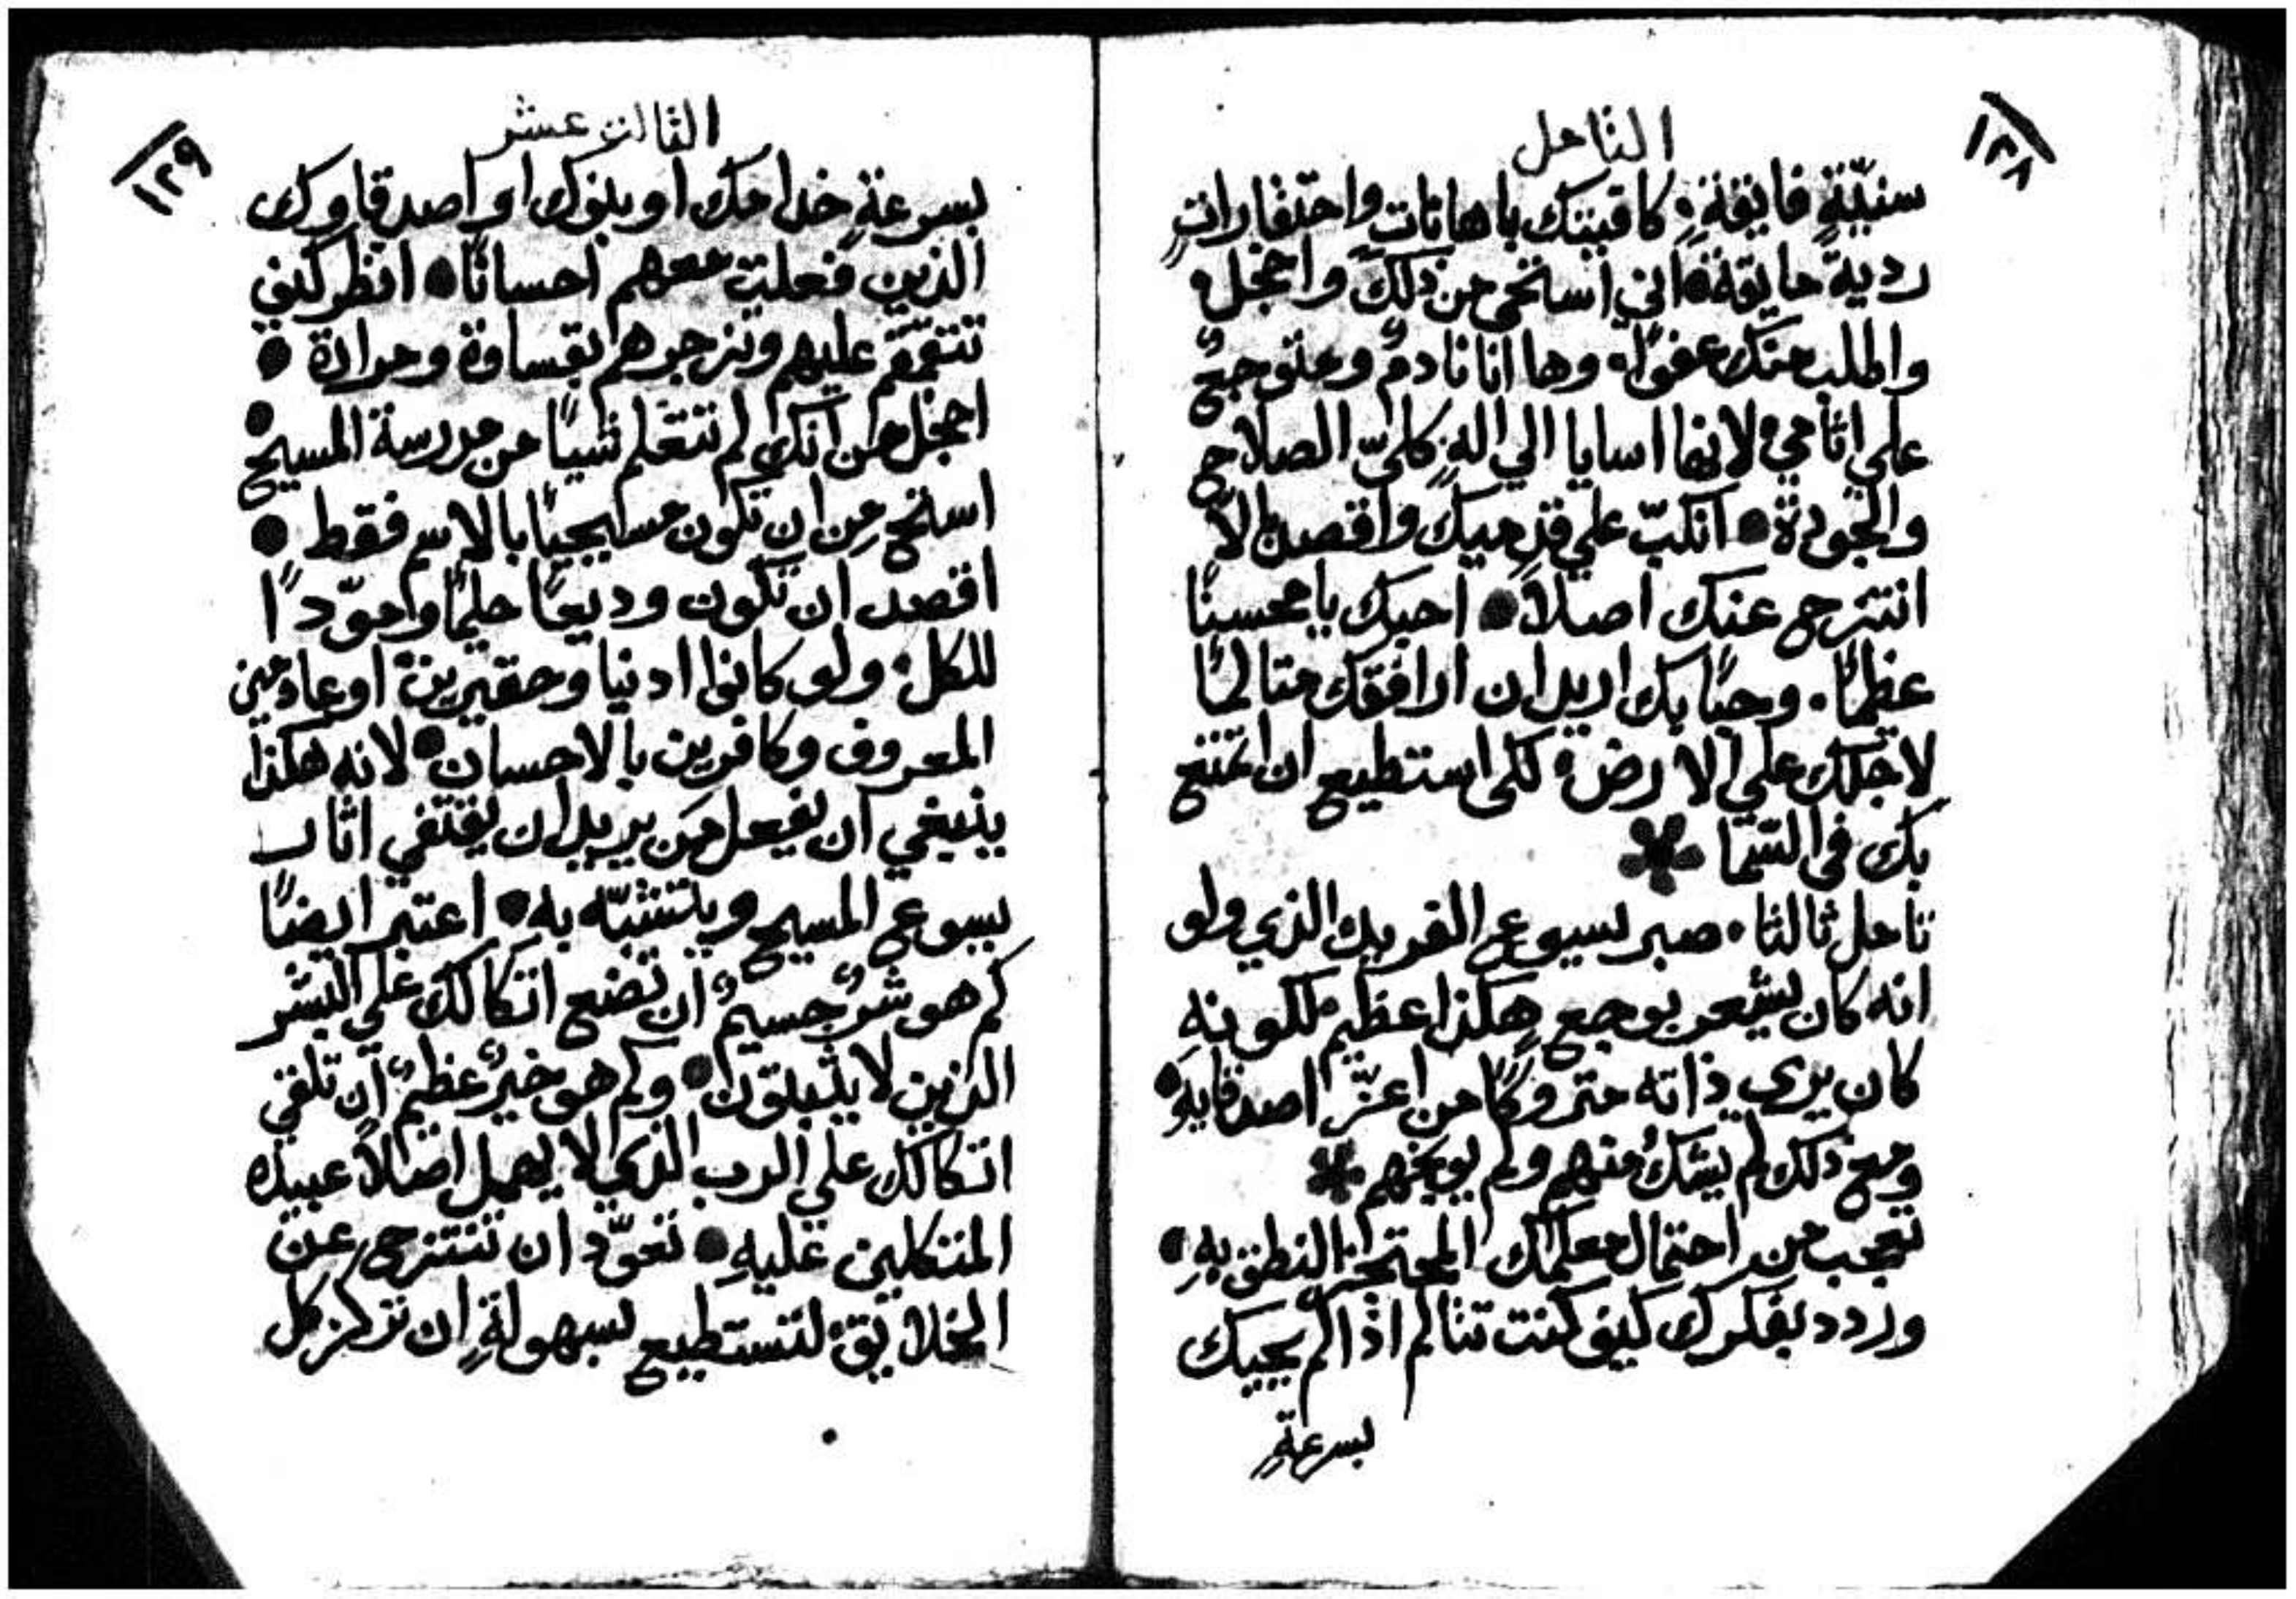 ١٢٨
التامل
سنيّةٍ فايقةٍ: كافيتك باهاناتٍ واحتقاراتٍ
رديةً حايقة۰ اني استحي من ذلك واخجل۰
واطلب منك عفوًا۰ وها انا نادمٌ ومتوجعٌ
علي اثامي۰ لانها اسايا الي الهٍ كليّ الصلاح
والجودة۰ انكبّ علي قدميك واقصد الاّ
انتزح عنك اصلاً۰ احبك يا محسنًا
عظيمًا۰ وحبًا بك اريد ان ارافقك متالمًا
لاجلك علي الارض۰ لكي استطيع ان اتمتع
بك في السّما
تامل ثالثا۰ صبر يسوع القريب الذي ولو
انه كان يشعر بوجعٍ هكذا عظيم لكونهِ
كان يري ذاته متروكًا من اعزّ اصدقايهِ۰
ومع ذلك لم يشكُ منهم ولم يوبخهم
تعجب من احتمال معلمك المعتجز النطق بهِ۰
وردد بفكرك كيف كنت تتالم اذا لم يجيبك
بسرعةٍ
١٢٩
الثالث عشر
بسرعةٍ خدامك او بنوك او اصدقاوك
الذين فعلت معهم احسانًا۰ انظر كيف
تتقمقم عليهم وتزجرهم بقساوة ومرارة۰
اخجل من انك لم تتعلم شيًا من مدرسة المسيح۰
استحِ مِن ان تكون مسيحيًا بالاسم فقط۰
اقصد ان تكون وديعًا حليمًا وموّدًا
للكل: ولو كانوا ادنيا وحقيرين او عادمين
المعروف وكافرين بالاحسان۰ لانه هكذا
ينبغي ان يفعل مَن يريد ان يقتفي اثار
يسوع المسيح ويتشبّه به۰ اعتبر ايضًا
كم هو شرٌ جسيمٌ ان تضع اتكالك علي البشر
الذين لا يثبتون۰ وكم هو خيرٌ عظيمٌ ان تلقي
اتكالك علي الرب الذي لا يهمل اصلاً عبيده
المتكلين عليهِ۰ تعوّد ان تنتزح عن
الخلايق: لتستطيع بسهولةٍ ان تركز كل